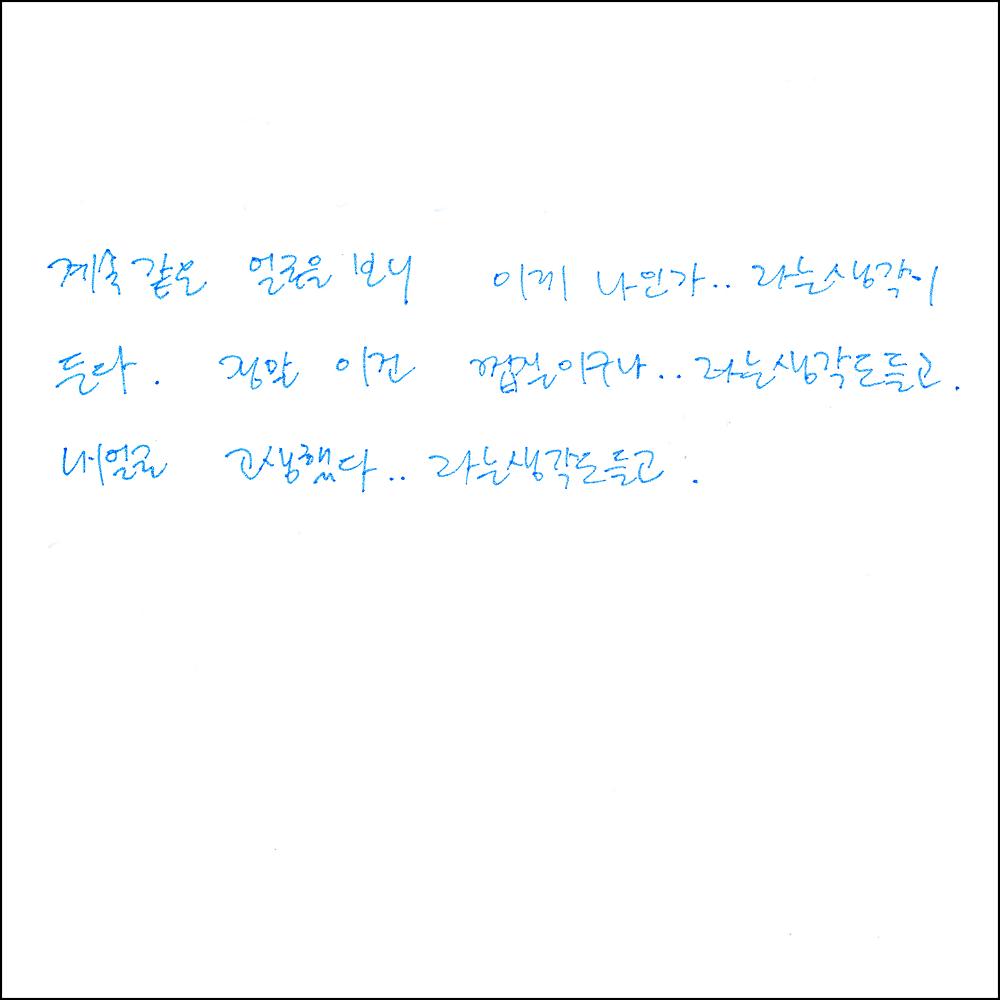 계속 같은 얼굴을 보니 이게 나인가.. 라는생각이
든다. 정말 이건 껍질이구나.. 라는생각도들고.
내얼굴 고생했다.. 라는생각도들고.